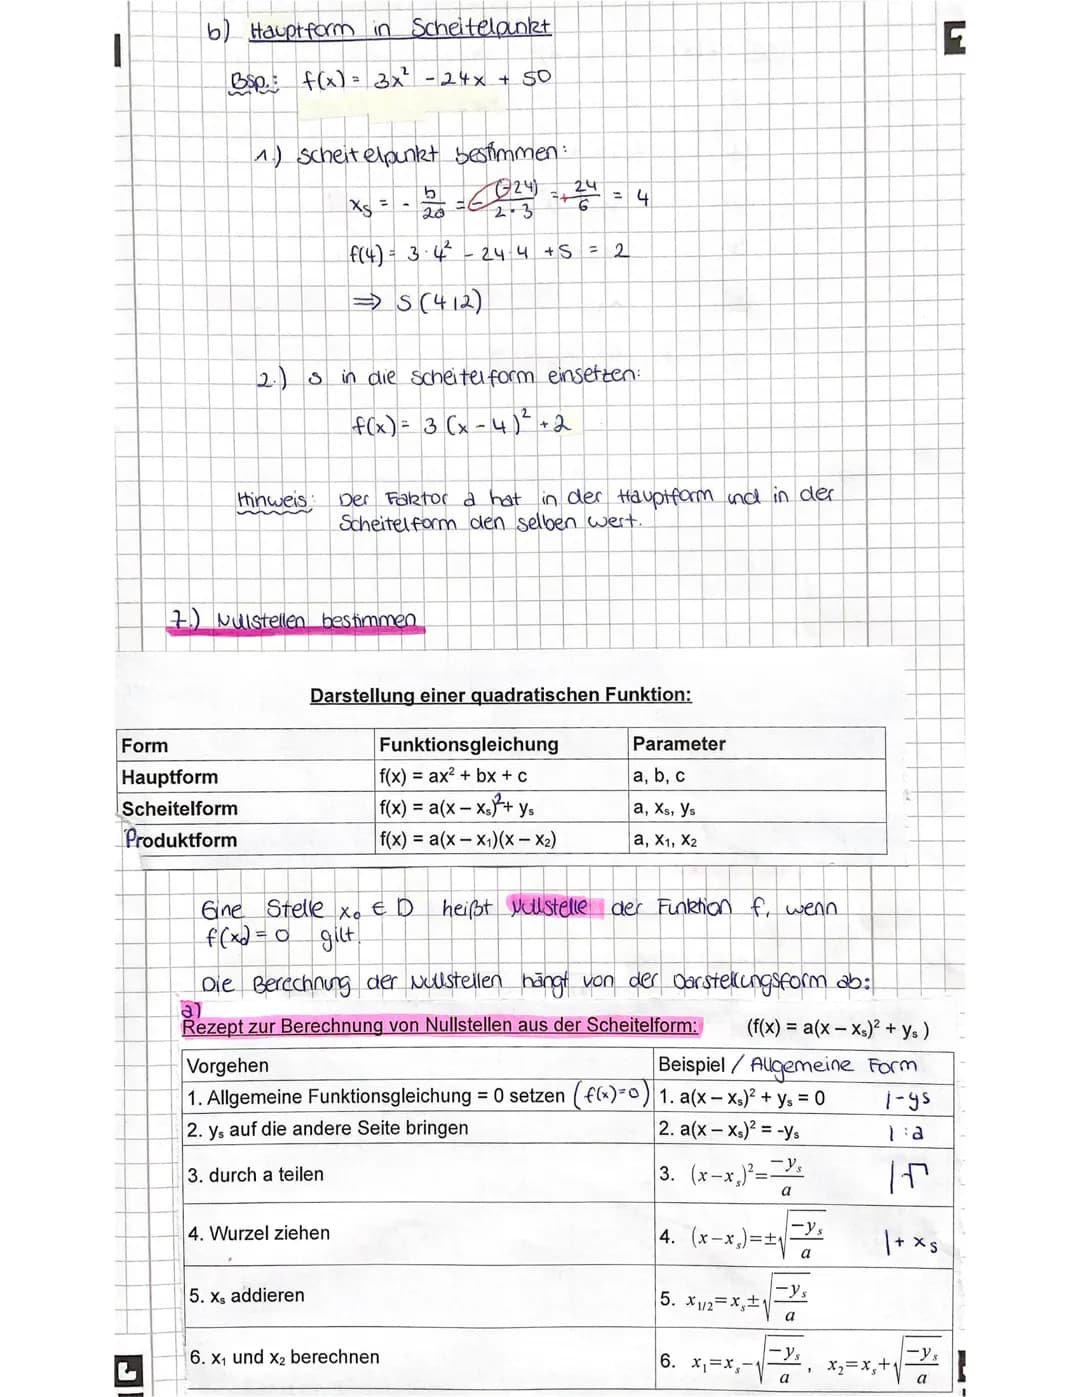 b) Hauptform in Scheitelpunkt
Bsp.: f(x) = 3x² - 24x + 50
1.) Scheitelpunkt bestimmen:
xs = - b/2a = - (-24)/2·3 = + 24/6 = 4
f(4) = 3·4² - 24·4 + 5 = 2
⇒ S(4|2)
2.) S in die Scheitelform einsetzen:
f(x) = 3(x - 4)² + 2
Hinweis: Der Faktor a hat in der Hauptform und in der
Scheitelform den selben Wert.
7.) Nullstellen bestimmen
Darstellung einer quadratischen Funktion:
Form Funktionsgleichung Parameter
Hauptform f(x) = ax² + bx + c a, b, c
Scheitelform f(x) = a(x – xₛ)² + yₛ a, xₛ, yₛ
Produktform f(x) = a(x – x₁)(x – x₂) a, x₁, x₂
Eine Stelle x₀ ∈ D heißt Nullstelle der Funktion f, wenn
f(x₀) = 0 gilt.
Die Berechnung der Nullstellen hängt von der Darstellungsform ab:
a)
Rezept zur Berechnung von Nullstellen aus der Scheitelform: (f(x) = a(x – xₛ)² + yₛ )
Vorgehen Beispiel / Allgemeine Form
1. Allgemeine Funktionsgleichung = 0 setzen (f(x)=0) 1. a(x – xₛ)² + yₛ = 0 |-ys
2. yₛ auf die andere Seite bringen 2. a(x – xₛ)² = -yₛ |:a
3. durch a teilen 3. (x-xₛ)²=-yₛ/a |√
4. Wurzel ziehen 4. (x-xₛ)=±√(-yₛ/a) |+ xs
5. xₛ addieren 5. x₁/₂=xₛ±√(-yₛ/a)
6. x₁ und x₂ berechnen 6. x₁=xₛ-√(-yₛ/a) , x₂=xₛ+√(-yₛ/a)